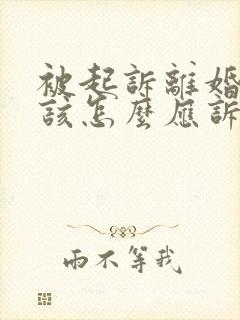 被起訴離婚
該怎麼應訴
雨不等我